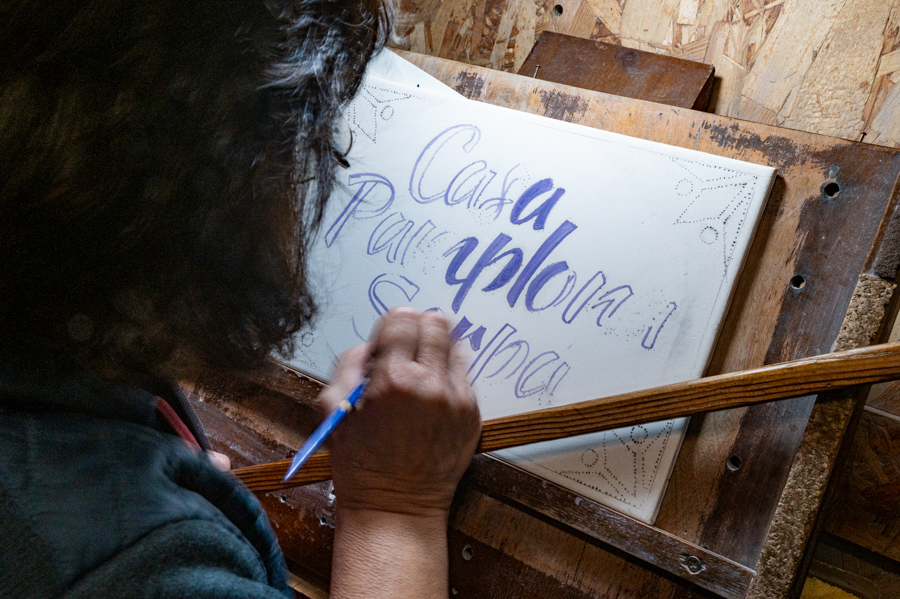 Casa
Pamplona
Serpa